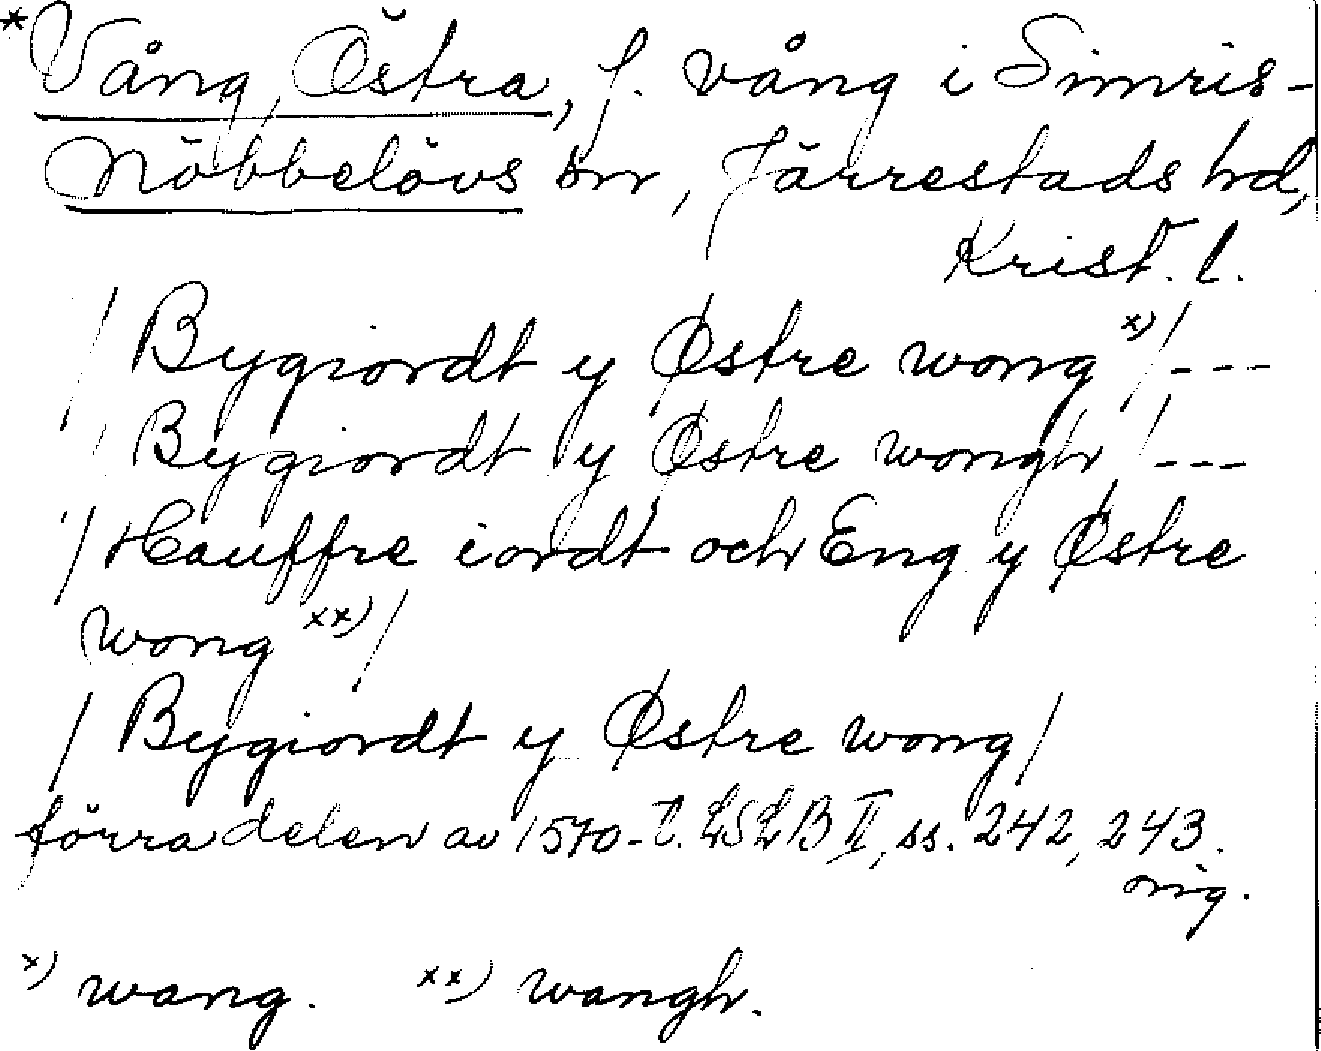 *Vång, Östra, f. vång i Simris-
Nöbbelövs sn, Järrestads hd,
Krist. l.
/ Bygiordt y Østre wong x) / ---
/ Bygiordt y Østre wongh / ---
/ Hauffre iordt och Eng y Østre
wong xx) /
/ Bygiordt y Østre wong /
förra delen av 1570-t. LSLB II, ss. 242, 243.
orig.
x) wang. xx) wangh.